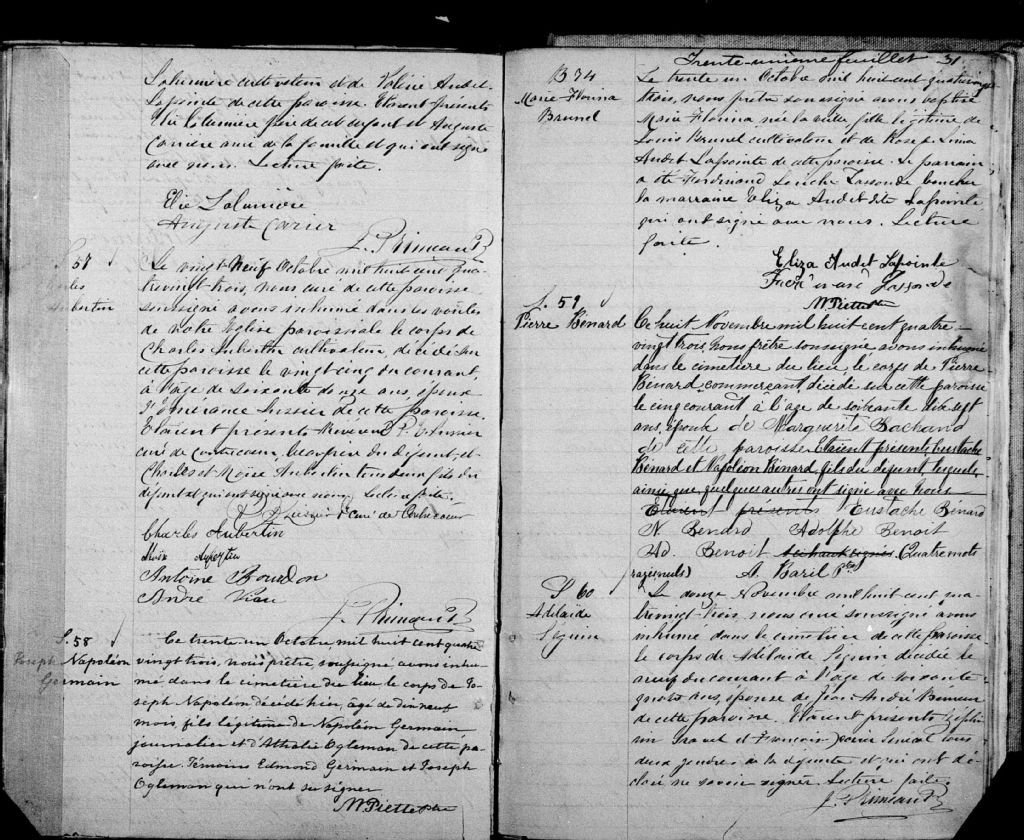 Lalumière cultivateur et de Valérie Audet-
Lapointe de cette paroisse. Etaient présents
Elie Lalumière père de cet defunt et Auguste
Carrière ami de la famille et qui ont signé
avec nous. Lecture faite.
Elie Lalumière
Auguste Carier
J. Primeau Ptr
S. 57
Charles
Aubertin
Le vingt Neuf Octobre mil huit cent qua-
trevingt trois, nous curé de cette paroisse
soussigné avons inhumé dans les voutes
de notre Eglise paroissiale le corps de
Charles Aubertin cultivateur, décédé en
cette paroisse le vingt cinq du courant,
à l'age de soixante douze ans, époux
d'Emérance Lussier de cette paroisse.
Etaient présents Reverend P. E. Lussier
curé de Contrecoeur, beaufrère du défunt, et
Charles et Moïse Aubertin tous deux fils du
défunt et qui ont signé avec nous, Lecture faite.
Lussier Ptr curé de Contrecoeur
Charles Aubertin
Moïse Aubertin
Antoine Bourdon
André Viau
J. Primeau Ptr
S. 58
Joseph Napoléon
Germain
Ce trente un Octobre, mil huit cent quatre
vingt trois, nous prêtre soussigné avons inhu-
mé dans le cimetière du lieu le corps de Jo-
seph Napoléon décédé hier, agé de dix neuf
mois, fils légitime de Napoléon Germain,
journalier et d'Attalie Ogleman de cette pa-
roisse. Témoins Edmond Germain et Joseph
Ogleman qui n'ont su signer
N Piette Ptr
Trente-unième feuillet 31.
B 34
Marie Florina
Brunel
Le trente un Octobre mil huit cent quatrevingt
trois, nous prêtre soussigné avons baptisé
Marie Florina née la veille fille légitime de
Louis Brunel cultivateur et de Rose de Lima
Audet Lapointe de cette paroisse. Le parrain
a été Ferdinand Lassonde boucher
la marraine Eliza Audet dite Lapointe
qui ont signé avec nous. Lecture
faite.
Eliza Audet Lapointe
Lassonde
N Piette Ptr
S. 59
Pierre Bénard
Ce huit Novembre mil huit cent quatre-
vingt trois, Nous Prêtre soussigné, avons inhumé
dans le cimetière du lieu le corps de Pierre
Bénard, commerçant, décédé sur cette paroisse
le cinq courant à l'age de soixante dix sept
ans, époux de Marguerite Bachand
de cette paroisse Etaient présents, Eustache
Bénard et Napoléon Bénard, fils du défunt, lesquels
ainsi que quelques autres ont signé avec Nous
Etaient présents Eustache Bénard
N. Benard Adolphe Benoit
Ad. Benoit (Quatre mots
rayés nuls) A. Baril Ptre
S 60
Adelaide
Seguin
Le douze Novembre mil huit cent qua-
trevingt-trois, nous curé soussigné avons
inhumé dans le cimetière de cette paroisse
le corps de Adelaide Seguin décédée le
neuf du courant à l'age de soixante
ans, épouse de Jean André
de cette paroisse. Etaient presents
Gravel et François Xavier Senécal tous
deux gendres de la défunte et qui ont dé-
claré ne savoir signer. Lecture faite,
J. Primeau Ptr